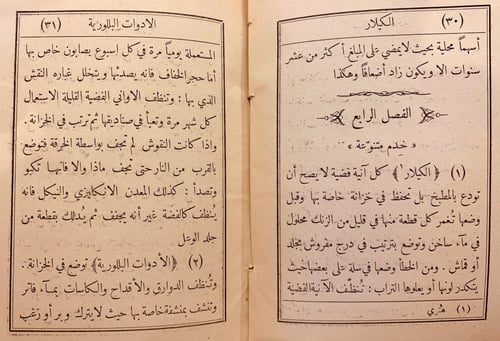 (٣٠) الكيلار
أسهماً محلية بحيث لا يمضي على المبلغ أكثر من عشر
سنوات الا ويكون زاد أضعافاً وهكذا
الفصل الرابع
« خدم متنوعة »
(١) ﴿الكيلار﴾ كل آنية فضية لا يصح أن
تودع بالمطبخ بل تحفظ في خزانة خاصة بها وقبل
وضعها تُغمر كل قطعة منها في قليل من الزنك محلول
في ماء ساخن وتوضع بترتيب في درج مفروش بجلد
أو قماش . ومن الخطأ وضعها في سلة على بعضها حيث
يتكدر لونها أو يعلوها التراب : تُنظّف الآنية الفضية
(١) هنري
الادوات البللورية (٣١)
المستعملة يومياً مرة في كل اسبوع بصابون خاص بها
أما حجر الخفاف فانه يصدئها ويتخلل غباره النقش
الذي بها : وتنظف الاواني الفضية القليلة الاستعمال
كل شهر مرة وتعبأ في صناديقها ثم ترتب في الخزانة .
واذا كانت النقوش لم تجف بواسطة الخرقة فتوضع
بالقرب من النار حتى تجف ماذا والا فانها تكبو
وتصدأ : كذلك المعدن الانكليزي والنيكل فانه
يُنظف كالفضة غير أنه يجفف ثم يُدلك بقطعة من
جلد الوعل
(٢) ﴿الأدوات البللورية﴾ توضع في الخزانة .
وتُنظف الدوارق والأقداح والكاسات بماء فاتر
وتنشف بمنشفة خاصة بها حيث لا يترك وبر أو زغب